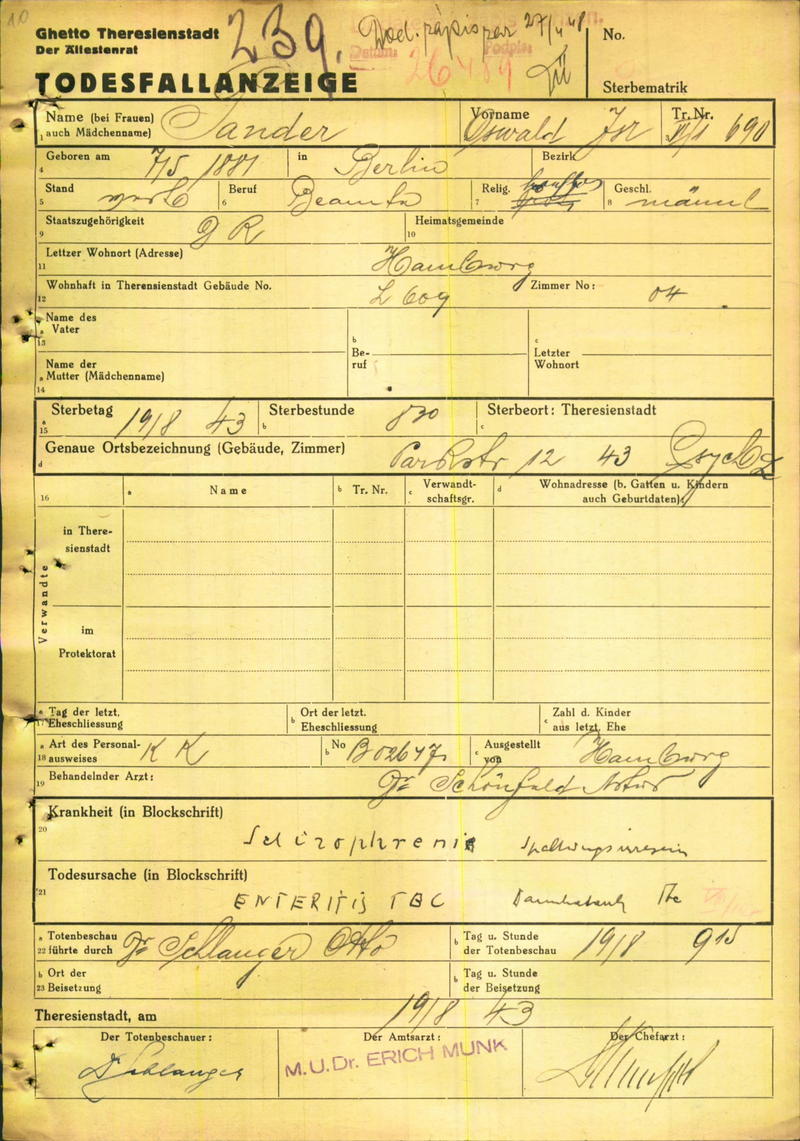 Ghetto Theresienstadt
Der Ältestenrat
239.
27/4 48
No.
Datum:
Podpis:
26489
TODESFALLANZEIGE
Sterbematrik
Name (bei Frauen) Sander Vorname Oswald Isr Tr. Nr. VI/1 690
1 auch Mädchenname)
Geboren am 7/5 1881 in Berlin Bezirk
4
Stand Beruf Beamte Relig. Geschl. männl
5 6 7 8
Staatszugehörigkeit D R Heimatsgemeinde
9 10
Lettzer Wohnort (Adresse) Hamburg
11
Wohnhaft in Theresienstadt Gebäude No. L 609 Zimmer No: 04
12
a Name des Vater
13
b Beruf
c Letzter Wohnort
Name der
a Mutter (Mädchenname)
14
a Sterbetag 19/8 43 b Sterbestunde 830 c Sterbeort: Theresienstadt
15
d Genaue Ortsbezeichnung (Gebäude, Zimmer) Parkstr 12 43
16 a Name b Tr. Nr. c Verwandtschaftsgr. d Wohnadresse (b. Gatten u. Kindern
auch Geburtdaten)
Verwandte
in Theresienstadt
im
Protektorat
a Tag der letzt. b Ort der letzt. c Zahl d. Kinder
17 Eheschliessung Eheschliessung aus letzt. Ehe
a Art des Personal- K K b No B02647 c Ausgestellt Hamburg
18 ausweises von
19 Behandelnder Arzt: Dr Schönfeld Artur
Krankheit (in Blockschrift)
20
Schizophrenie Spaltungsirresein
Todesursache (in Blockschrift)
21
ENTERITIS TBC Tbc
a Totenbeschau Dr Schlanger Otto b Tag u. Stunde 19/8 915
22 führte durch der Totenbeschau
b Ort der b Tag u. Stunde
23 Beisetzung der Beisetzung
Theresienstadt, am 19/8 43
Der Totenbeschauer: Der Amtsarzt: Der Chefarzt:
Dr Schlanger M.U.Dr. ERICH MUNK